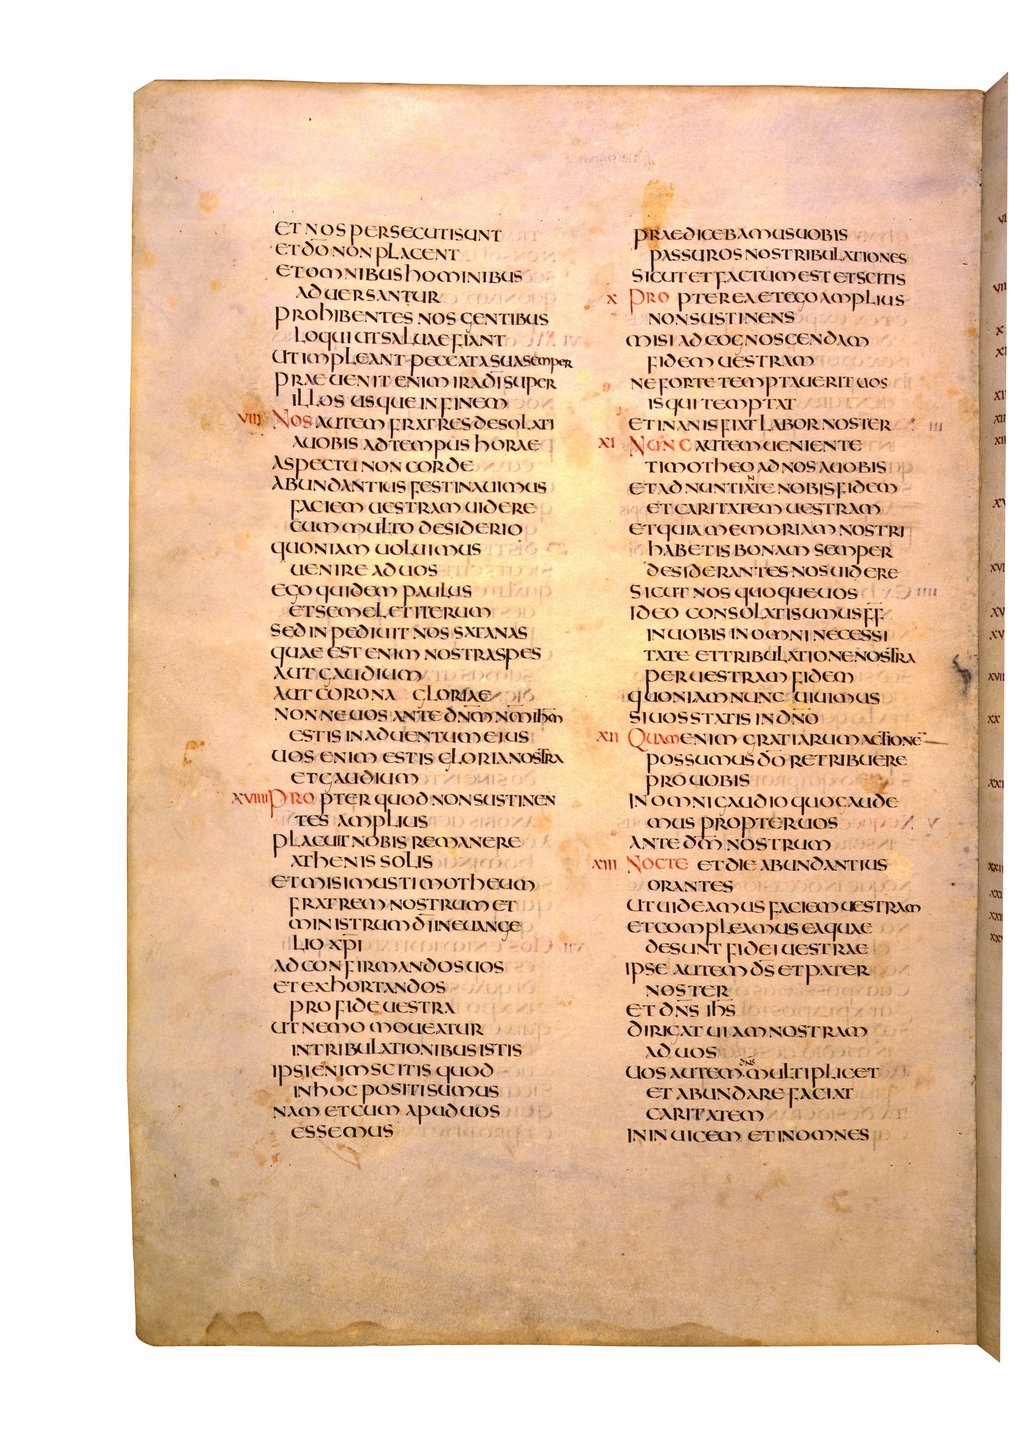 ET NOS PERSECUTI SUNT
ET DŌ NON PLACENT
ET OMNIBUS HOMINIBUS
ADVERSANTUR
PROHIBENTES NOS GENTIBUS
LOQUI UT SALUAE FIANT
UT IMPLEANT PECCATA SUA SEMPER
PRAEUENIT ENIM IRA DĪ SUPER
ILLOS USQUE IN FINEM
VIIII NOS AUTEM FRATRES DESOLATI
A UOBIS AD TEMPUS HORAE
ASPECTU NON CORDE
ABUNDANTIUS FESTINAUIMUS
FACIEM UESTRAM UIDERE
CUM MULTO DESIDERIO
QUONIAM UOLUIMUS
UENIRE AD UOS
EGO QUIDEM PAULUS
ET SEMEL ET ITERUM
SED INPEDIUIT NOS SATANAS
QUAE EST ENIM NOSTRA SPES
AUT GAUDIUM
AUT CORONA GLORIAE
NONNE UOS ANTE DN̄M N̄M IH̄M
ESTIS IN ADUENTUM EIUS
UOS ENIM ESTIS GLORIA NOSTRA
ET GAUDIUM
XVIIII PROPTER QUOD NON SUSTINEN
TES AMPLIUS
PLACUIT NOBIS REMANERE
ATHENIS SOLIS
ET MISIMUS TIMOTHEUM
FRATREM NOSTRUM ET
MINISTRUM DĪ IN EUANGE
LIO XP̄I
AD CONFIRMANDOS UOS
ET EXHORTANDOS
PRO FIDE UESTRA
UT NEMO MOUEATUR
IN TRIBULATIONIBUS ISTIS
IPSI ENIM SCITIS QUOD
IN HOC POSITI SUMUS
NAM ET CUM APUD UOS
ESSEMUS
PRAEDICEBAMUS UOBIS
PASSUROS NOS TRIBULATIONES
SICUT ET FACTUM EST ET SCITIS
X PROPTEREA ET EGO AMPLIUS
NON SUSTINENS
MISI AD COGNOSCENDAM
FIDEM UESTRAM
NE FORTE TEMPTAUERIT UOS
IS QUI TEMPTAT
ET INANIS FIAT LABOR NOSTER
XI NUNC AUTEM UENIENTE
TIMOTHEO AD NOS A UOBIS
ET ADNUNTIANTE NOBIS FIDEM
ET CARITATEM UESTRAM
ET QUIA MEMORIAM NOSTRI
HABETIS BONAM SEMPER
DESIDERANTES NOS UIDERE
SICUT NOS QUOQUE UOS
IDEO CONSOLATI SUMUS F̄F̄
IN UOBIS IN OMNI NECESSI
TATE ET TRIBULATIONE NOSTRA
PER UESTRAM FIDEM
QUONIAM NUNC UIUIMUS
SI UOS STATIS IN DN̄O
XII QUAM ENIM GRATIARUM ACTIONE
POSSUMUS DŌ RETRIBUERE
PRO UOBIS
IN OMNI GAUDIO QUO GAUDE
MUS PROPTER UOS
ANTE DM̄ NOSTRUM
XIII NOCTE ET DIE ABUNDANTIUS
ORANTES
UT UIDEAMUS FACIEM UESTRAM
ET COMPLEAMUS EA QUAE
DESUNT FIDEI UESTRAE
IPSE AUTEM DS̄ ET PATER
NOSTER
ET DN̄S IH̄S
DIRIGAT UIAM NOSTRAM
AD UOS
UOS AUTEM DN̄S MULTIPLICET
ET ABUNDARE FACIAT
CARITATEM
IN INUICEM ET IN OMNES